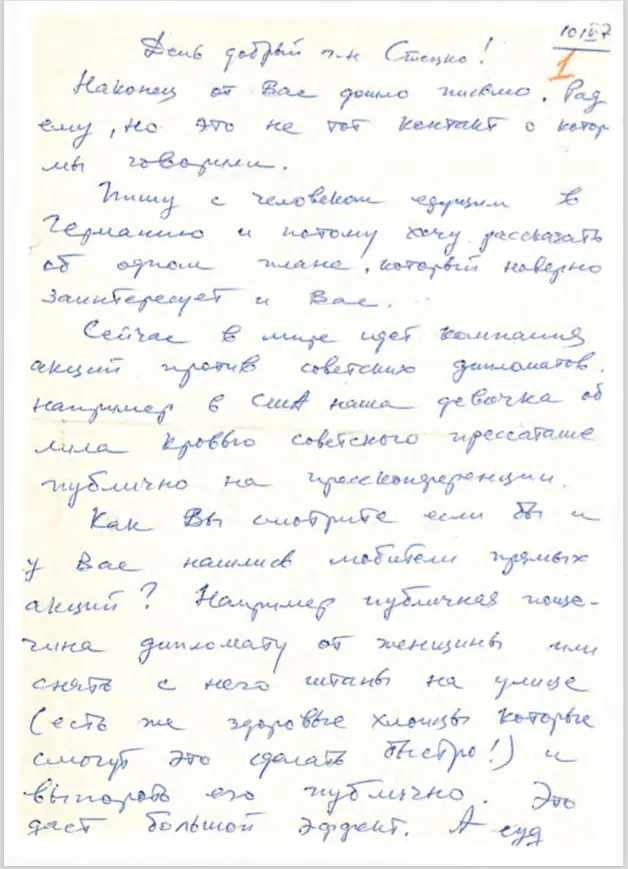 10 IV 7
1
День добрый г-н Стецко!
Наконец от Вас дошло письмо. Рад
ему, но это не тот контакт о котор
мы говорили.
Пишу с человеком едущим в
Германию и потому хочу рассказать
об одном плане, который наверно
заинтересует и Вас.
Сейчас в мире идет компания
акций против советских дипломатов.
например в США наша девочка об
лила кровью советского прессаташе
публично на прессконференции.
Как Вы смотрите если бы и
у Вас нашлись любители прямых
акций? Например публичная поще-
чина дипломату от женщины или
снять с него штаны на улице
(есть же здоровые хлопцы которые
смогут это сделать быстро!) и
выпороть его публично. Это
даст большой эффект. А суд